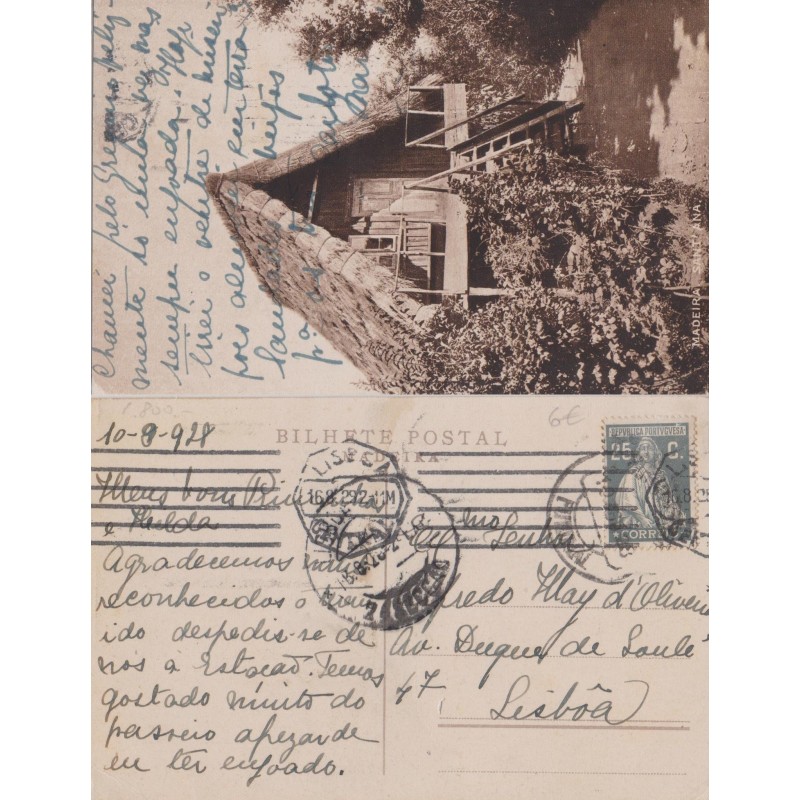 Chamei pelo Gregorio feliz-
mente só uma vez mas
sempre enjoada. Hoje
tirei o ventre de miseria
pois almocei em terra
Saudades beijos
p.a os
MADEIRA SANT'ANA
1.800-
6€
10-8-928
BILHETE POSTAL
MADEIRA
REPUBLICA PORTUGUESA
25 C.
CORREIO
LISBOA
16.8.292-11M
Meus bons Primos
e Hilda
Agradecemos muito
reconhecidos o terem
ido despedir-se de
nós á Estação. Temos
gostado muito do
passeio apezar de
eu ter enjoado.
Exmo Senhor
Alfredo May d'Oliveira
Av. Duque de Loulé
47
Lisbôa